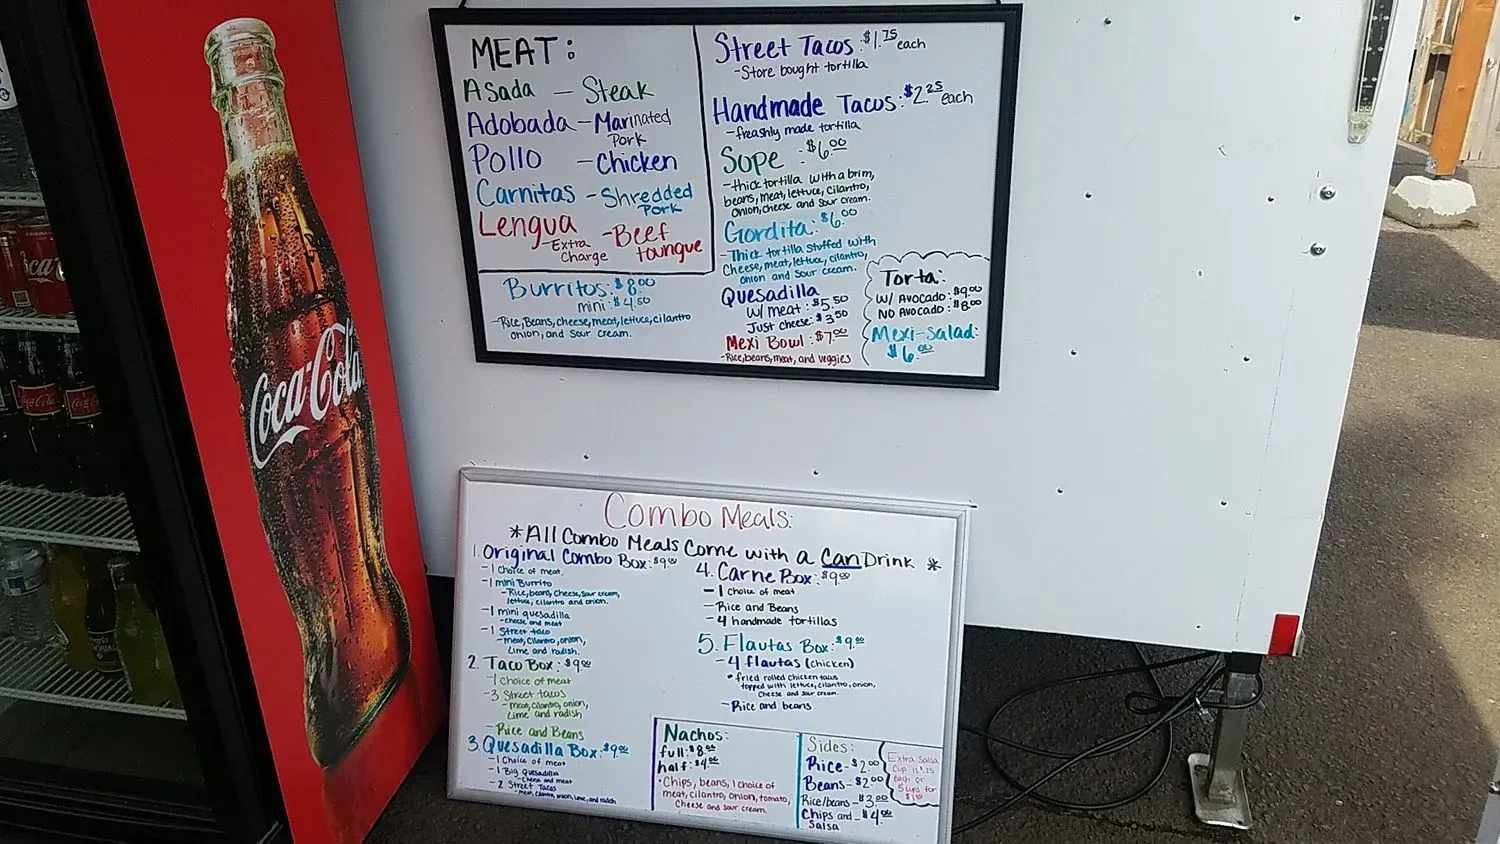 MEAT:
Asada - Steak
Adobada - Marinated
Pork
Pollo - Chicken
Carnitas - Shredded
Pork
Lengua - Beef
Extra
Charge
toungue
Burritos: $8.00
mini: $4.50
- Rice, Beans, cheese, meat, lettuce, cilantro
onion, and sour cream.
Street Tacos: $1.75 each
- Store bought tortilla
Handmade Tacos: $2.25 each
- freashly made tortilla
Sope - $6.00
- thick tortilla with a brim,
beans, meat, lettuce, cilantro,
onion, cheese and sour cream.
Gordita: $6.00
- Thick tortilla stuffed with
Cheese, meat, lettuce, cilantro,
onion and sour cream.
Quesadilla
w/ meat: $5.50
Just cheese: $3.50
Mexi Bowl: $7.00
- Rice, beans, meat, and veggies
Torta:
W/ Avocado: $9.00
No Avocado: $8.00
Mexi-Salad:
$6.00
Coca-Cola
Coca-Cola
Coca-Cola
Combo Meals:
* All Combo Meals Come with a Can Drink *
1. Original Combo Box: $9.00
- 1 Choice of meat.
- 1 mini Burrito
- Rice, beans, cheese, sour cream,
lettuce, cilantro and onion.
- 1 mini quesadilla
- cheese and meat
- 1 Street taco
- meat, cilantro, onion,
Lime and radish.
2. Taco Box: $9.00
- 1 Choice of meat
- 3 Street tacos
- meat, cilantro, onion,
Lime and radish
- Rice and Beans
3. Quesadilla Box: $9.00
- 1 Choice of meat
- 1 Big Quesadilla
- Cheese and meat
- 2 Street Tacos
- meat, cilantro, onion, lime, and radish
4. Carne Box: $9.00
- 1 choice of meat
- Rice and Beans
- 4 handmade tortillas
5. Flautas Box: $9.00
- 4 flautas (chicken)
• fried rolled chicken tacos
topped with lettuce, cilantro, onion,
Cheese and sour cream.
- Rice and beans
Nachos:
full: $8.00
half: $4.00
• Chips, beans, 1 choice of
meat, cilantro, onion, tomato,
Cheese and sour cream.
Sides:
Rice - $2.00
Beans - $2.00
Rice/beans - $3.00
Chips and - $4.00
Salsa
Extra Salsa
Cup is $.25
each or
5 cups for
$1.00